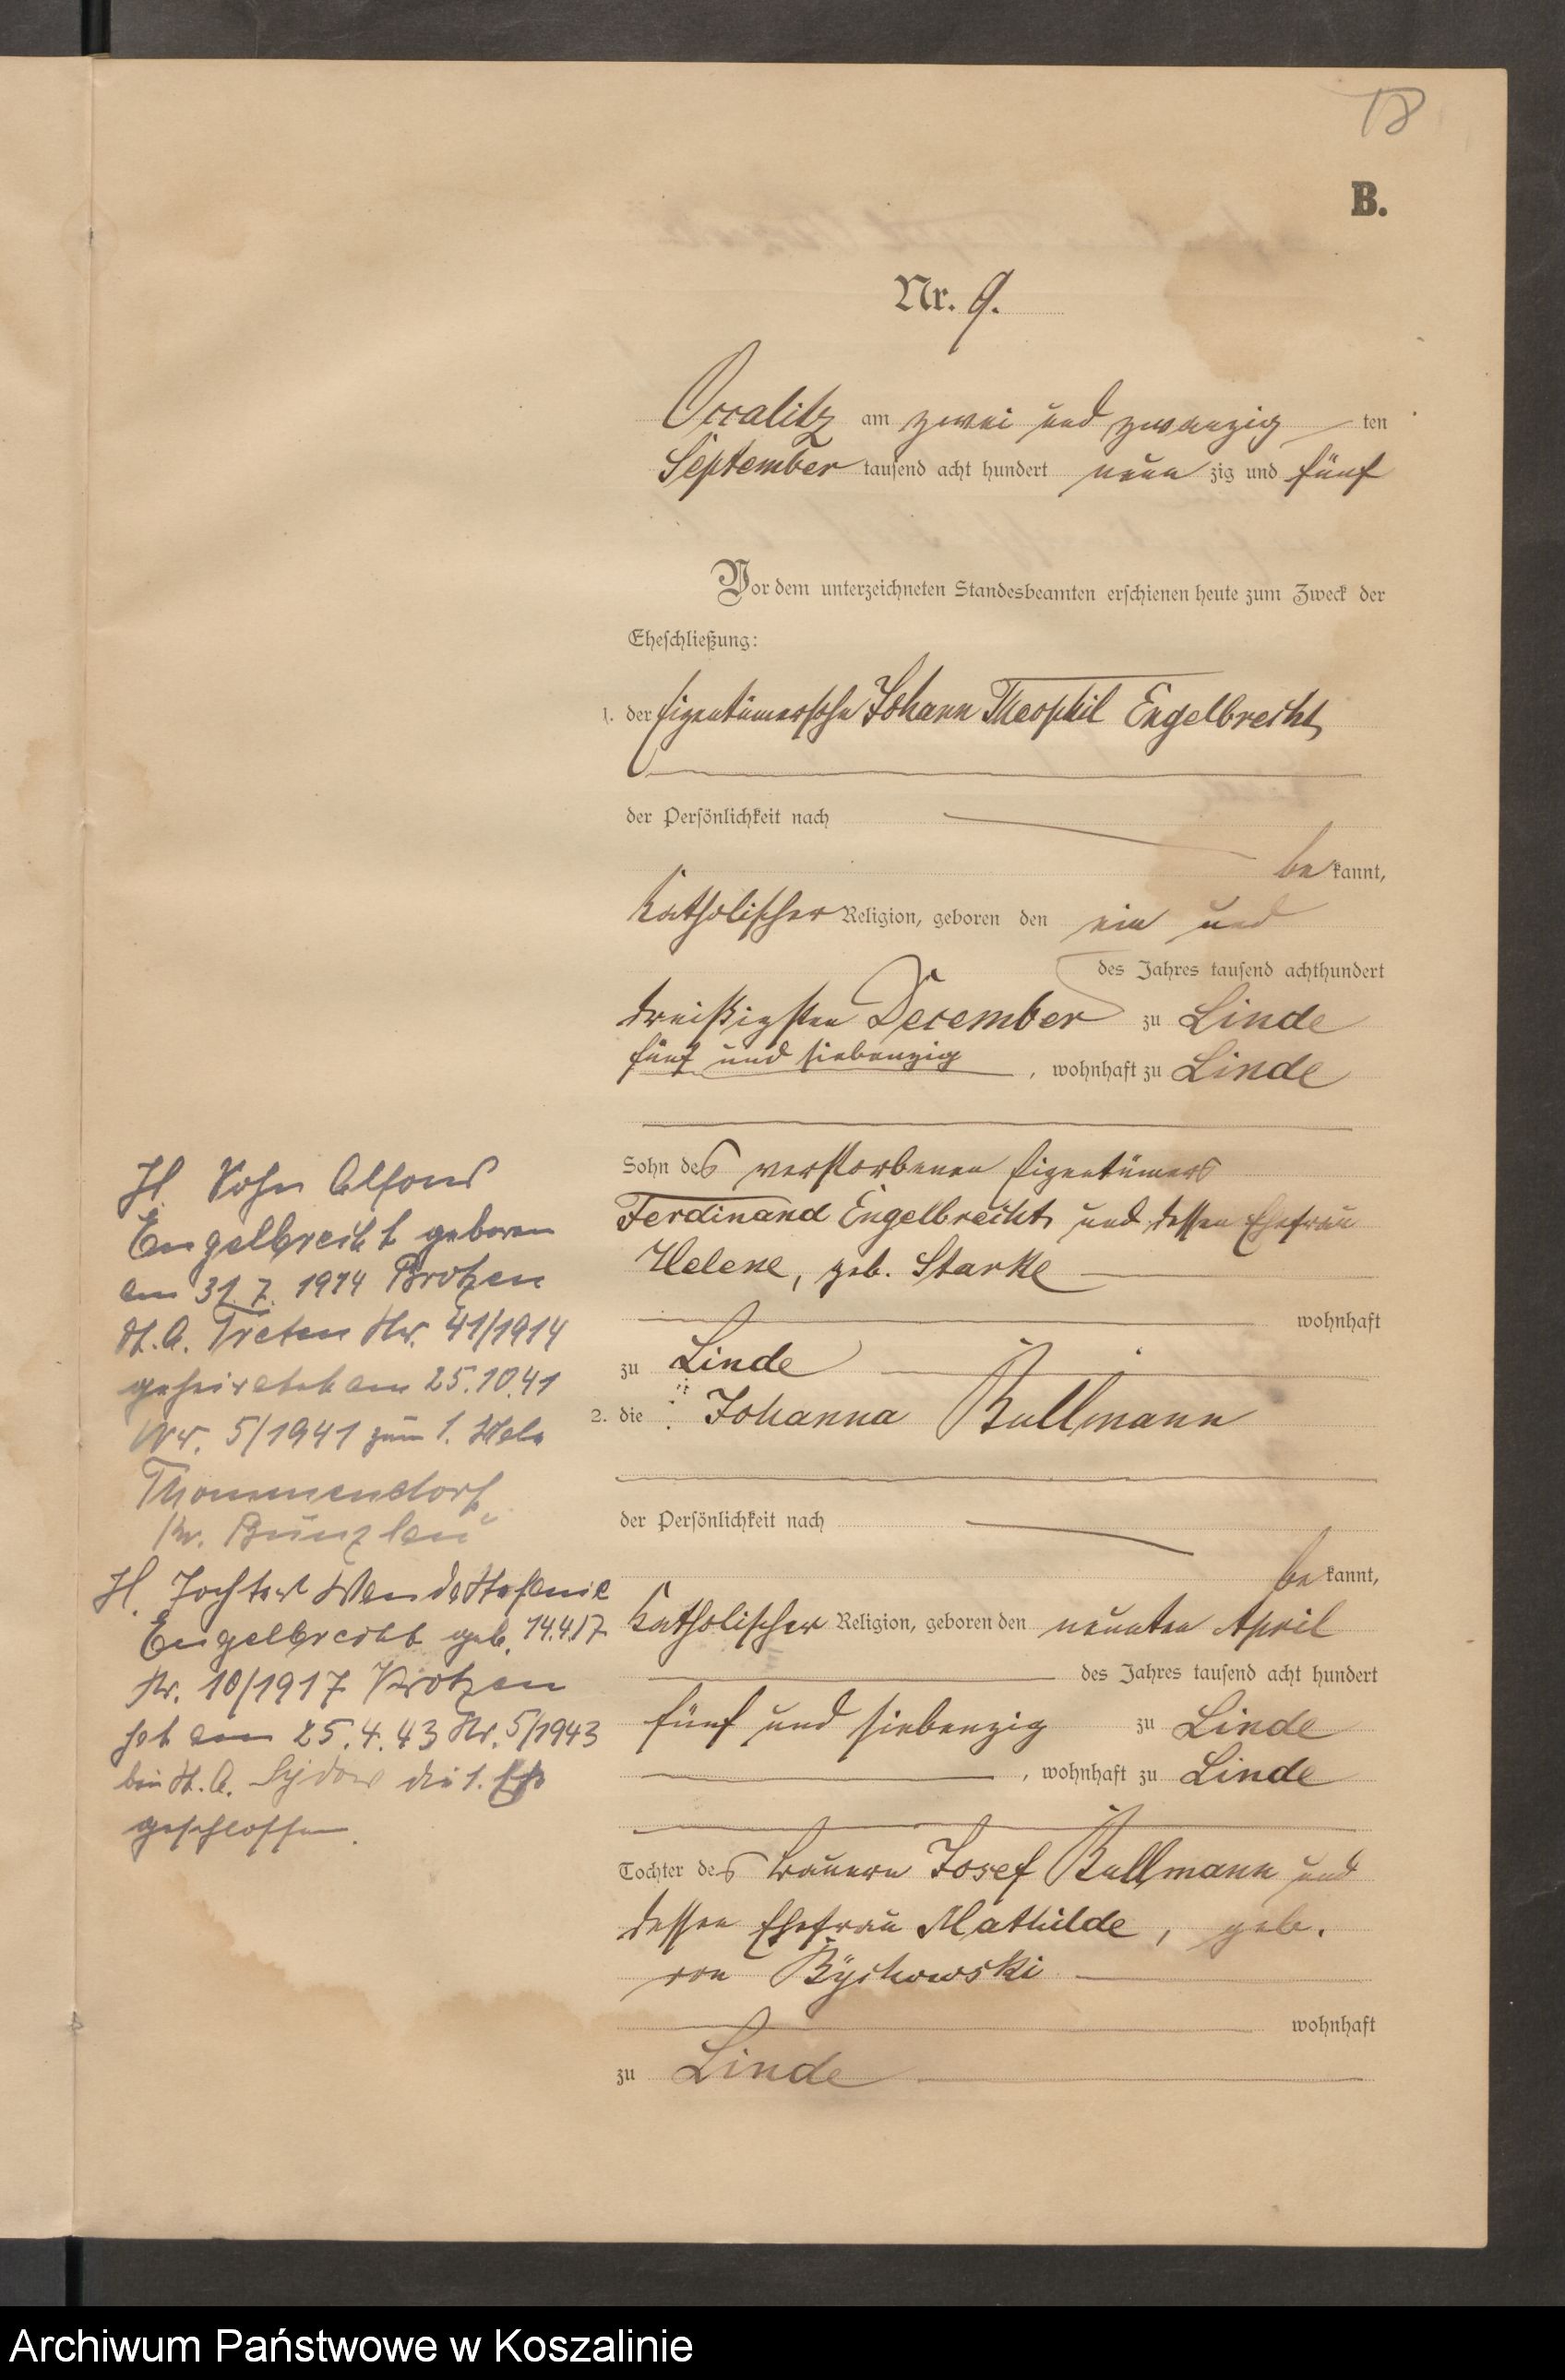 18
B.
Nr. 9.
Occalitz am zwei und zwanzig ten
September tausend acht hundert neun zig und fünf
Vor dem unterzeichneten Standesbeamten erschienen heute zum Zweck der
Eheschließung:
1. der Eigentümersohn Johann Theophil Engelbrecht,
der Persönlichkeit nach
bekannt,
katholischer Religion, geboren den ein und
des Jahres tausend achthundert
dreißigsten December zu Linde
fünf und siebenzig, wohnhaft zu Linde
Sohn des verstorbenen Eigentümers
Ferdinand Engelbrecht und dessen Ehefrau
Helene, geb. Starke
wohnhaft
zu Linde
2. die Johanna Bullmann
der Persönlichkeit nach
bekannt,
katholischer Religion, geboren den neunten April
des Jahres tausend acht hundert
fünf und siebenzig zu Linde
, wohnhaft zu Linde
Tochter des Bauern Josef Bullmann und
dessen Ehefrau Mathilde, geb.
von Bychowski
wohnhaft
zu Linde
Sohn Alfons
Engelbrecht geboren
am 31.7.1914
St.A. Treten Nr. 41/1914
geheiratet am 25.10.41
Nr. 5/1941 zum 1. Male
Thommendorf
Kr. Bunzlau
Tochter Wanda Stefanie
Engelbrecht geb. 14.4.17
Nr. 10/1917
hat am 25.4.43 Nr. 5/1943
bei St.A. Sydow die 1. Ehe
geschlossen.
Archiwum Państwowe w Koszalinie